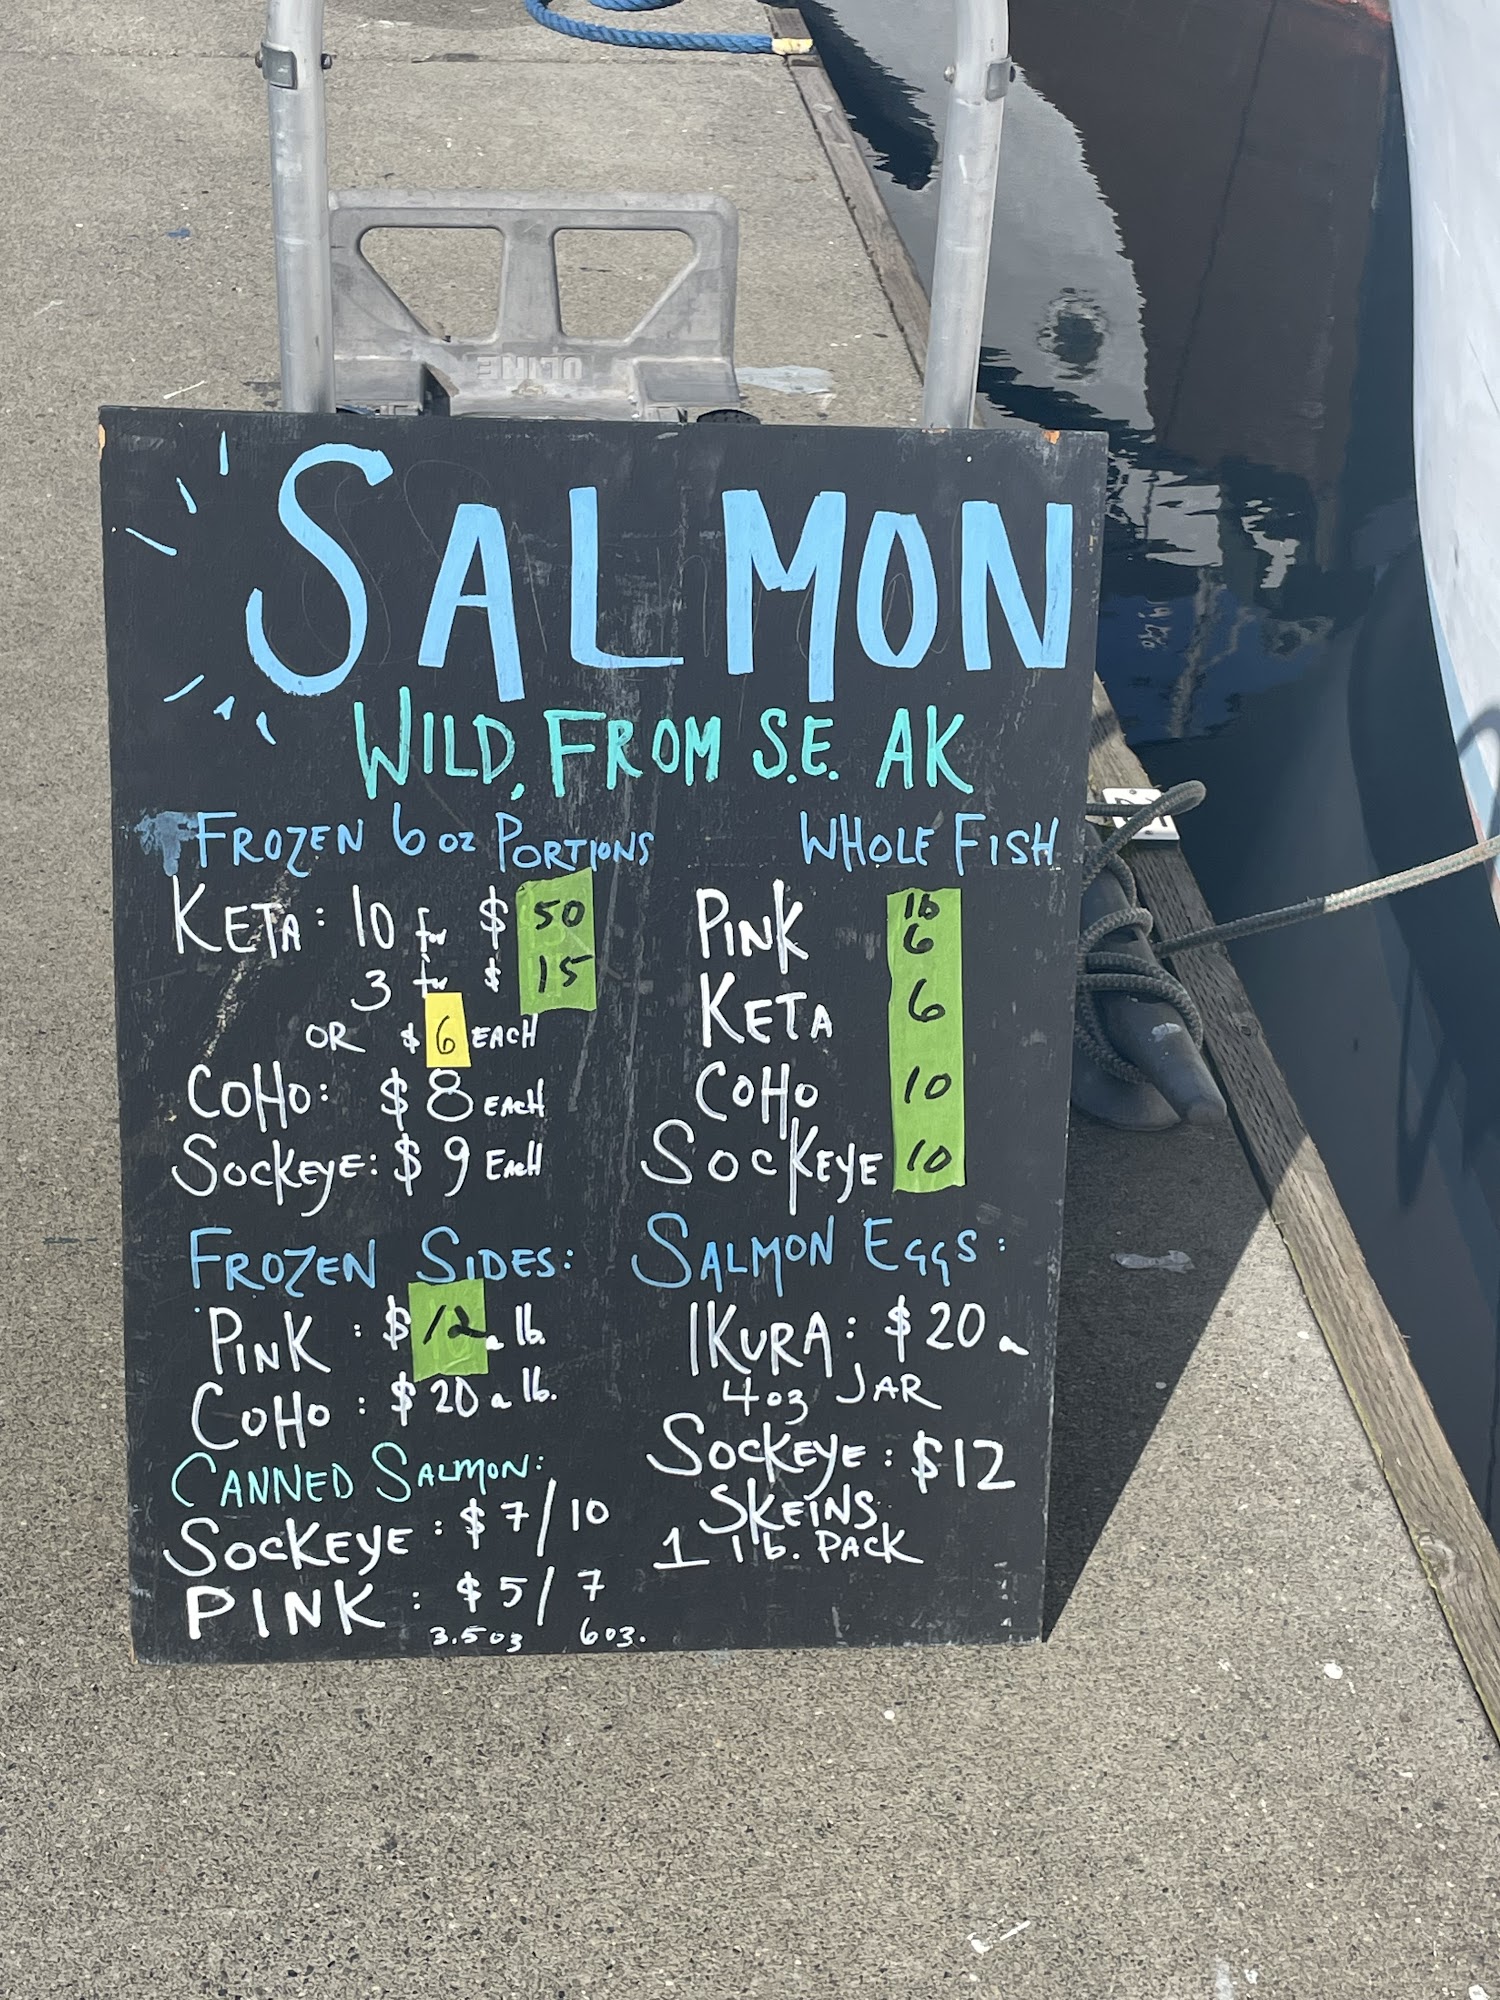 SALMON
WILD, FROM S.E. AK
FROZEN 6 oz PORTIONS
KETA: 10 for $ 50
3 for $ 15
OR $ 6 EACH
COHO: $ 8 EACH
SOCKEYE: $ 9 EACH
WHOLE FISH
lb
PINK 6
KETA 6
COHO 10
SOCKEYE 10
FROZEN SIDES:
PINK : $ 12 a lb.
COHO : $ 20 a lb.
CANNED SALMON:
SOCKEYE : $ 7 / 10
PINK : $ 5 / 7
3.5 oz 6 oz.
SALMON EGGS:
IKURA: $ 20 a
4 oz JAR
SOCKEYE: $12
SKEINS
1 lb. PACK